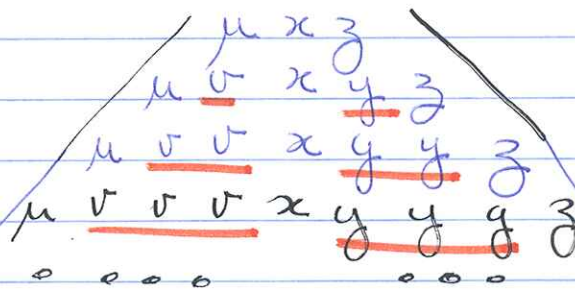 μ x z
μ v x y z
μ v v x y y z
μ v v v x y y y z